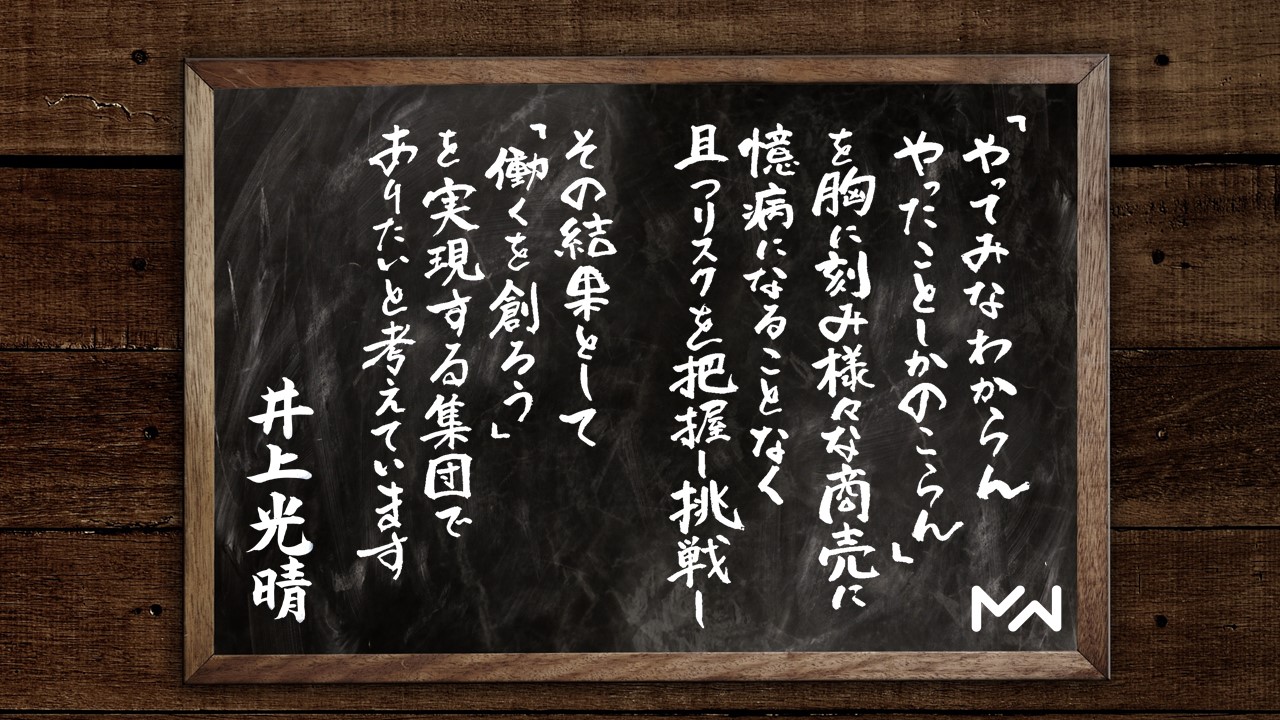 「やってみなわからん
やったことしかのこらん」
を胸に刻み様々な商売に
憶病になることなく
且つリスクを把握し挑戦し
その結果として
「働くを創ろう」
を実現する集団で
ありたいと考えています
井上光晴
MW